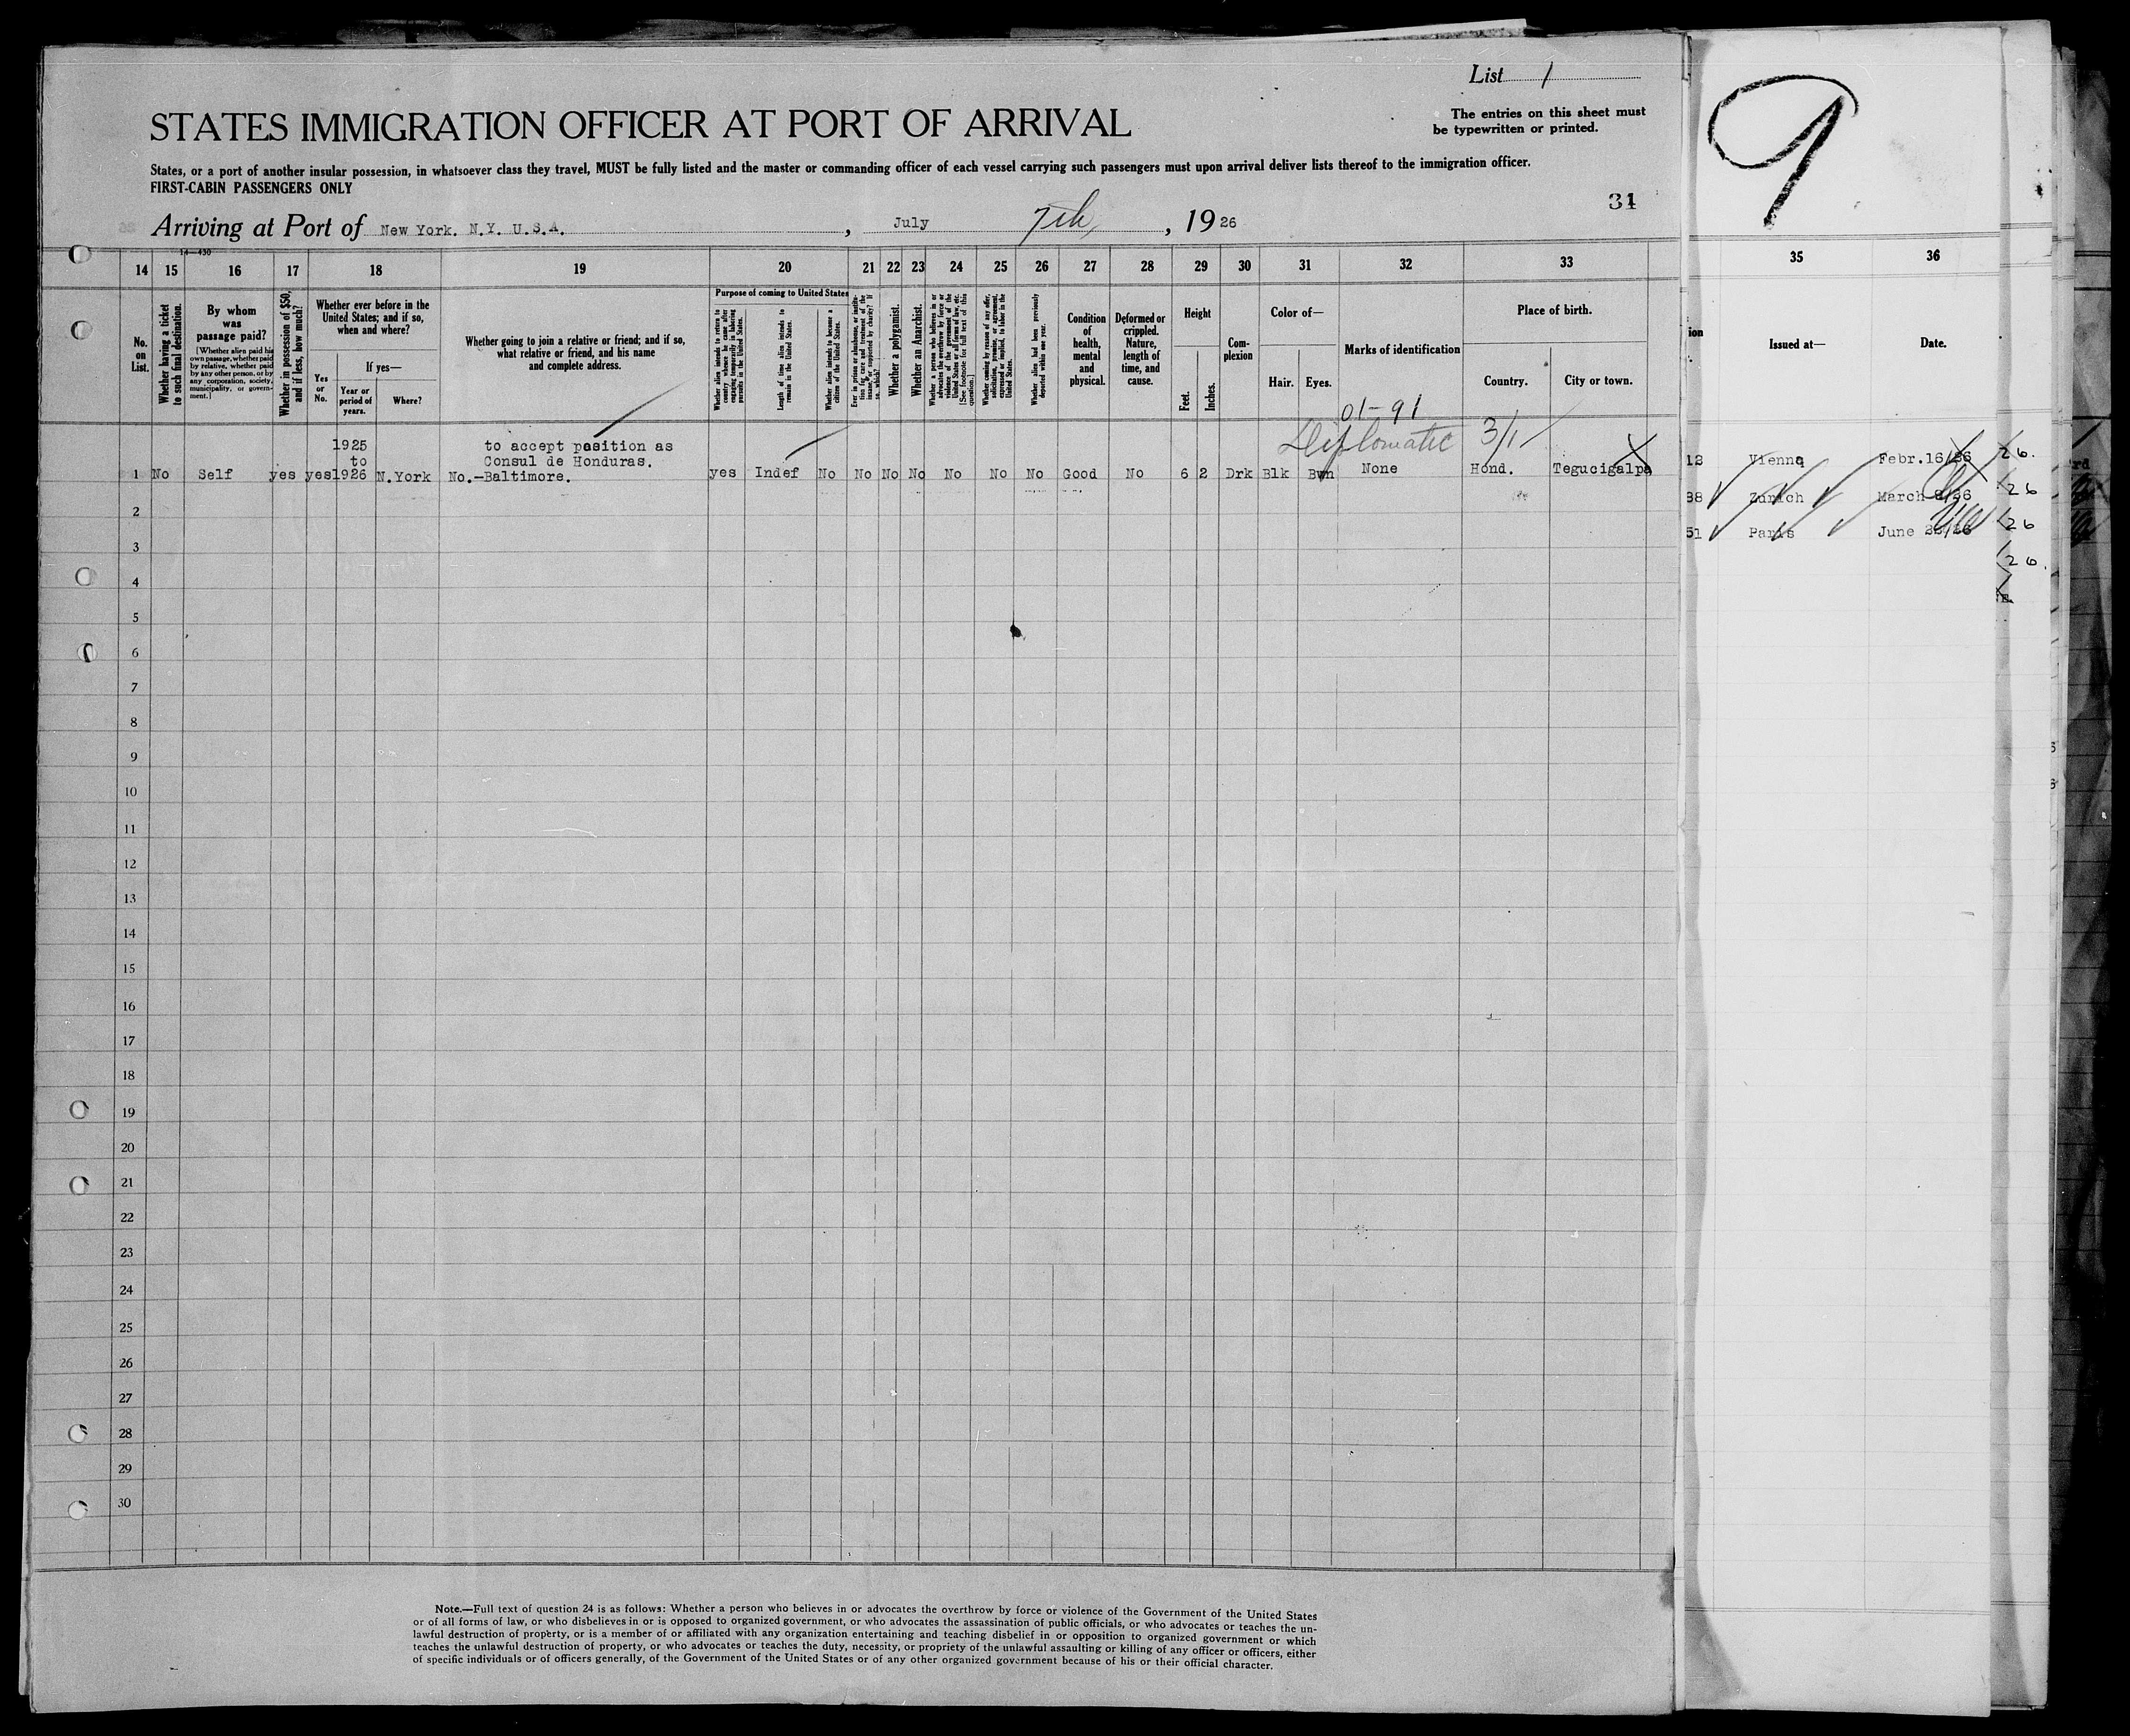 List 1
The entries on this sheet must
be typewritten or printed.
STATES IMMIGRATION OFFICER AT PORT OF ARRIVAL
States, or a port of another insular possession, in whatsoever class they travel, MUST be fully listed and the master or commanding officer of each vessel carrying such passengers must upon arrival deliver lists thereof to the immigration officer.
FIRST-CABIN PASSENGERS ONLY
31
Arriving at Port of New York. N.Y. U.S.A. , July 7th, , 19 26
9
14—430
14 15 16 17 18 19 20 21 22 23 24 25 26 27 28 29 30 31 32 33 35 36
No. on List.
Whether having a ticket to such final destination.
By whom was passage paid?
[Whether alien paid his own passage, whether paid by relative, whether paid by any other person, or by any corporation, society, municipality, or government.]
Whether in possession of $50, and if less, how much?
Whether ever before in the United States; and if so, when and where?
Yes or No.
If yes—
Year or period of years.
Where?
Whether going to join a relative or friend; and if so, what relative or friend, and his name and complete address.
Purpose of coming to United States
Whether alien intends to return to country whence he came after engaging temporarily in laboring pursuits in the United States.
Length of time alien intends to remain in the United States.
Whether alien intends to become a citizen of the United States.
Ever in prison or almshouse, or institution for care and treatment of the insane, or supported by charity? If so, which?
Whether a polygamist.
Whether an Anarchist.
Whether a person who believes in or advocates the overthrow by force or violence of the government of the United States or all forms of law, etc. [See footnote for full text of this question.]
Whether coming by reason of any offer, solicitation, promise, or agreement, expressed or implied, to labor in the United States.
Whether alien had been previously deported within one year.
Condition of health, mental and physical.
Deformed or crippled. Nature, length of time, and cause.
Height
Feet.
Inches.
Complexion
Color of—
Hair.
Eyes.
Marks of identification
Place of birth.
Country.
City or town.
Issued at—
Date.
01-91
Diplomatic 3/1
1925 to accept position as
to Consul de Honduras.
1 No Self yes yes 1926 N.York No.-Baltimore. yes Indef No No No No No No No Good No 6 2 Drk Blk Bwn None Hond. Tegucigalpa
12 Vienna Febr.16/26 26.
88 Zurich March 26
51 Paris June 26
26.
2
3
4
5
6
7
8
9
10
11
12
13
14
15
16
17
18
19
20
21
22
23
24
25
26
27
28
29
30
Note.—Full text of question 24 is as follows: Whether a person who believes in or advocates the overthrow by force or violence of the Government of the United States
or of all forms of law, or who disbelieves in or is opposed to organized government, or who advocates the assassination of public officials, or who advocates or teaches the un-
lawful destruction of property, or is a member of or affiliated with any organization entertaining and teaching disbelief in or opposition to organized government or which
teaches the unlawful destruction of property, or who advocates or teaches the duty, necessity, or propriety of the unlawful assaulting or killing of any officer or officers, either
of specific individuals or of officers generally, of the Government of the United States or of any other organized government because of his or their official character.